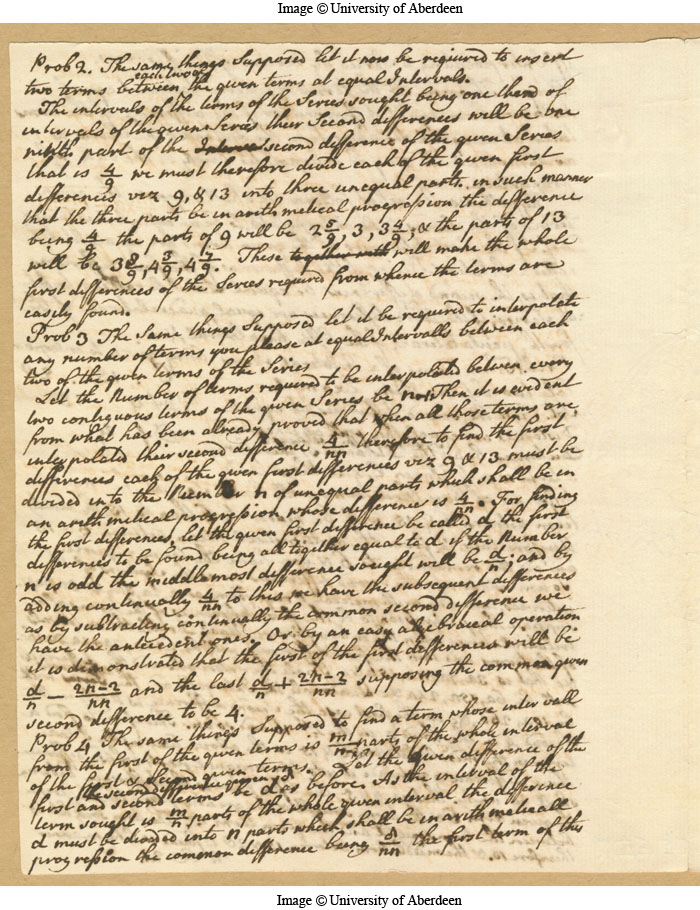 Image © University of Aberdeen
Prob 2. The same things Supposed let it now be required to insert
each two of
two terms between the given terms at equal Intervals.
The intervals of the terms of the Series sought being one third of
intervals of the given Series their Second differences will be one
ninth part of the second difference of the given Series
that is 4/9 we must therefore divide each of the given first
differences viz 9, & 13 into three unequal parts, in such manner
that the three parts be in arithmetical progression the difference
being 4/9 the parts of 9 will be 2 5/9, 3, 3 4/9; & the parts of 13
will be 3 8/9, 4 3/9, 4 7/9. These together with will make the whole
first differences of the Series required from whence the terms are
easily found.
Prob 3 The Same things Supposed let it be required to interpolate
any number of terms you please at equal Intervalls between each
two of the given terms of the Series
Let the Number of terms required to be interpolated betwen every
two contiguous terms of the given Series be Then it is evident
from what has been already proved that when all those terms are
interpolated their second difference 4/nn therefore to find the first
differences each of the given first differences viz 9 & 13 must be
divided into the Number n of unequal parts which shall be in
an arithmetical progression whose difference is 4/nn. For finding
the first differences, let the given first difference be called d, the first
differences to be found being all together equal to d if the Number
n is odd the middlemost difference sought will be d/n; and by
adding continually 4/nn to this we have the subsequent differences
as by subtracting continually the common second difference we
have the antecedent ones. Or by an easy algebraical operation
it is demonstrated that the first of the first differences will be
d/n − 2n−2/nn and the last d/n + 2n−2/nn supposing the common given
second difference to be 4.
Prob 4 The same things Supposed to find a term whose intervall
from the first of the given terms is m/n parts of the whole interval
of the first & Second given terms. Let the given difference of the
the second difference
first and second terms be d as before. As the interval of the
term sought is m/n parts of the whole given interval the difference
d must be divided into n parts which shall be in arithmeticall
progression the comenon difference being 8/nn the first term of this
Image © University of Aberdeen